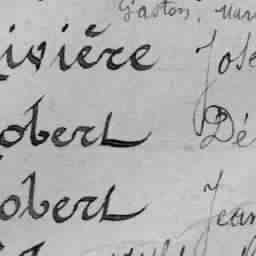 Gaston, Mari
ivière Jose
obert Dé
obert Jean